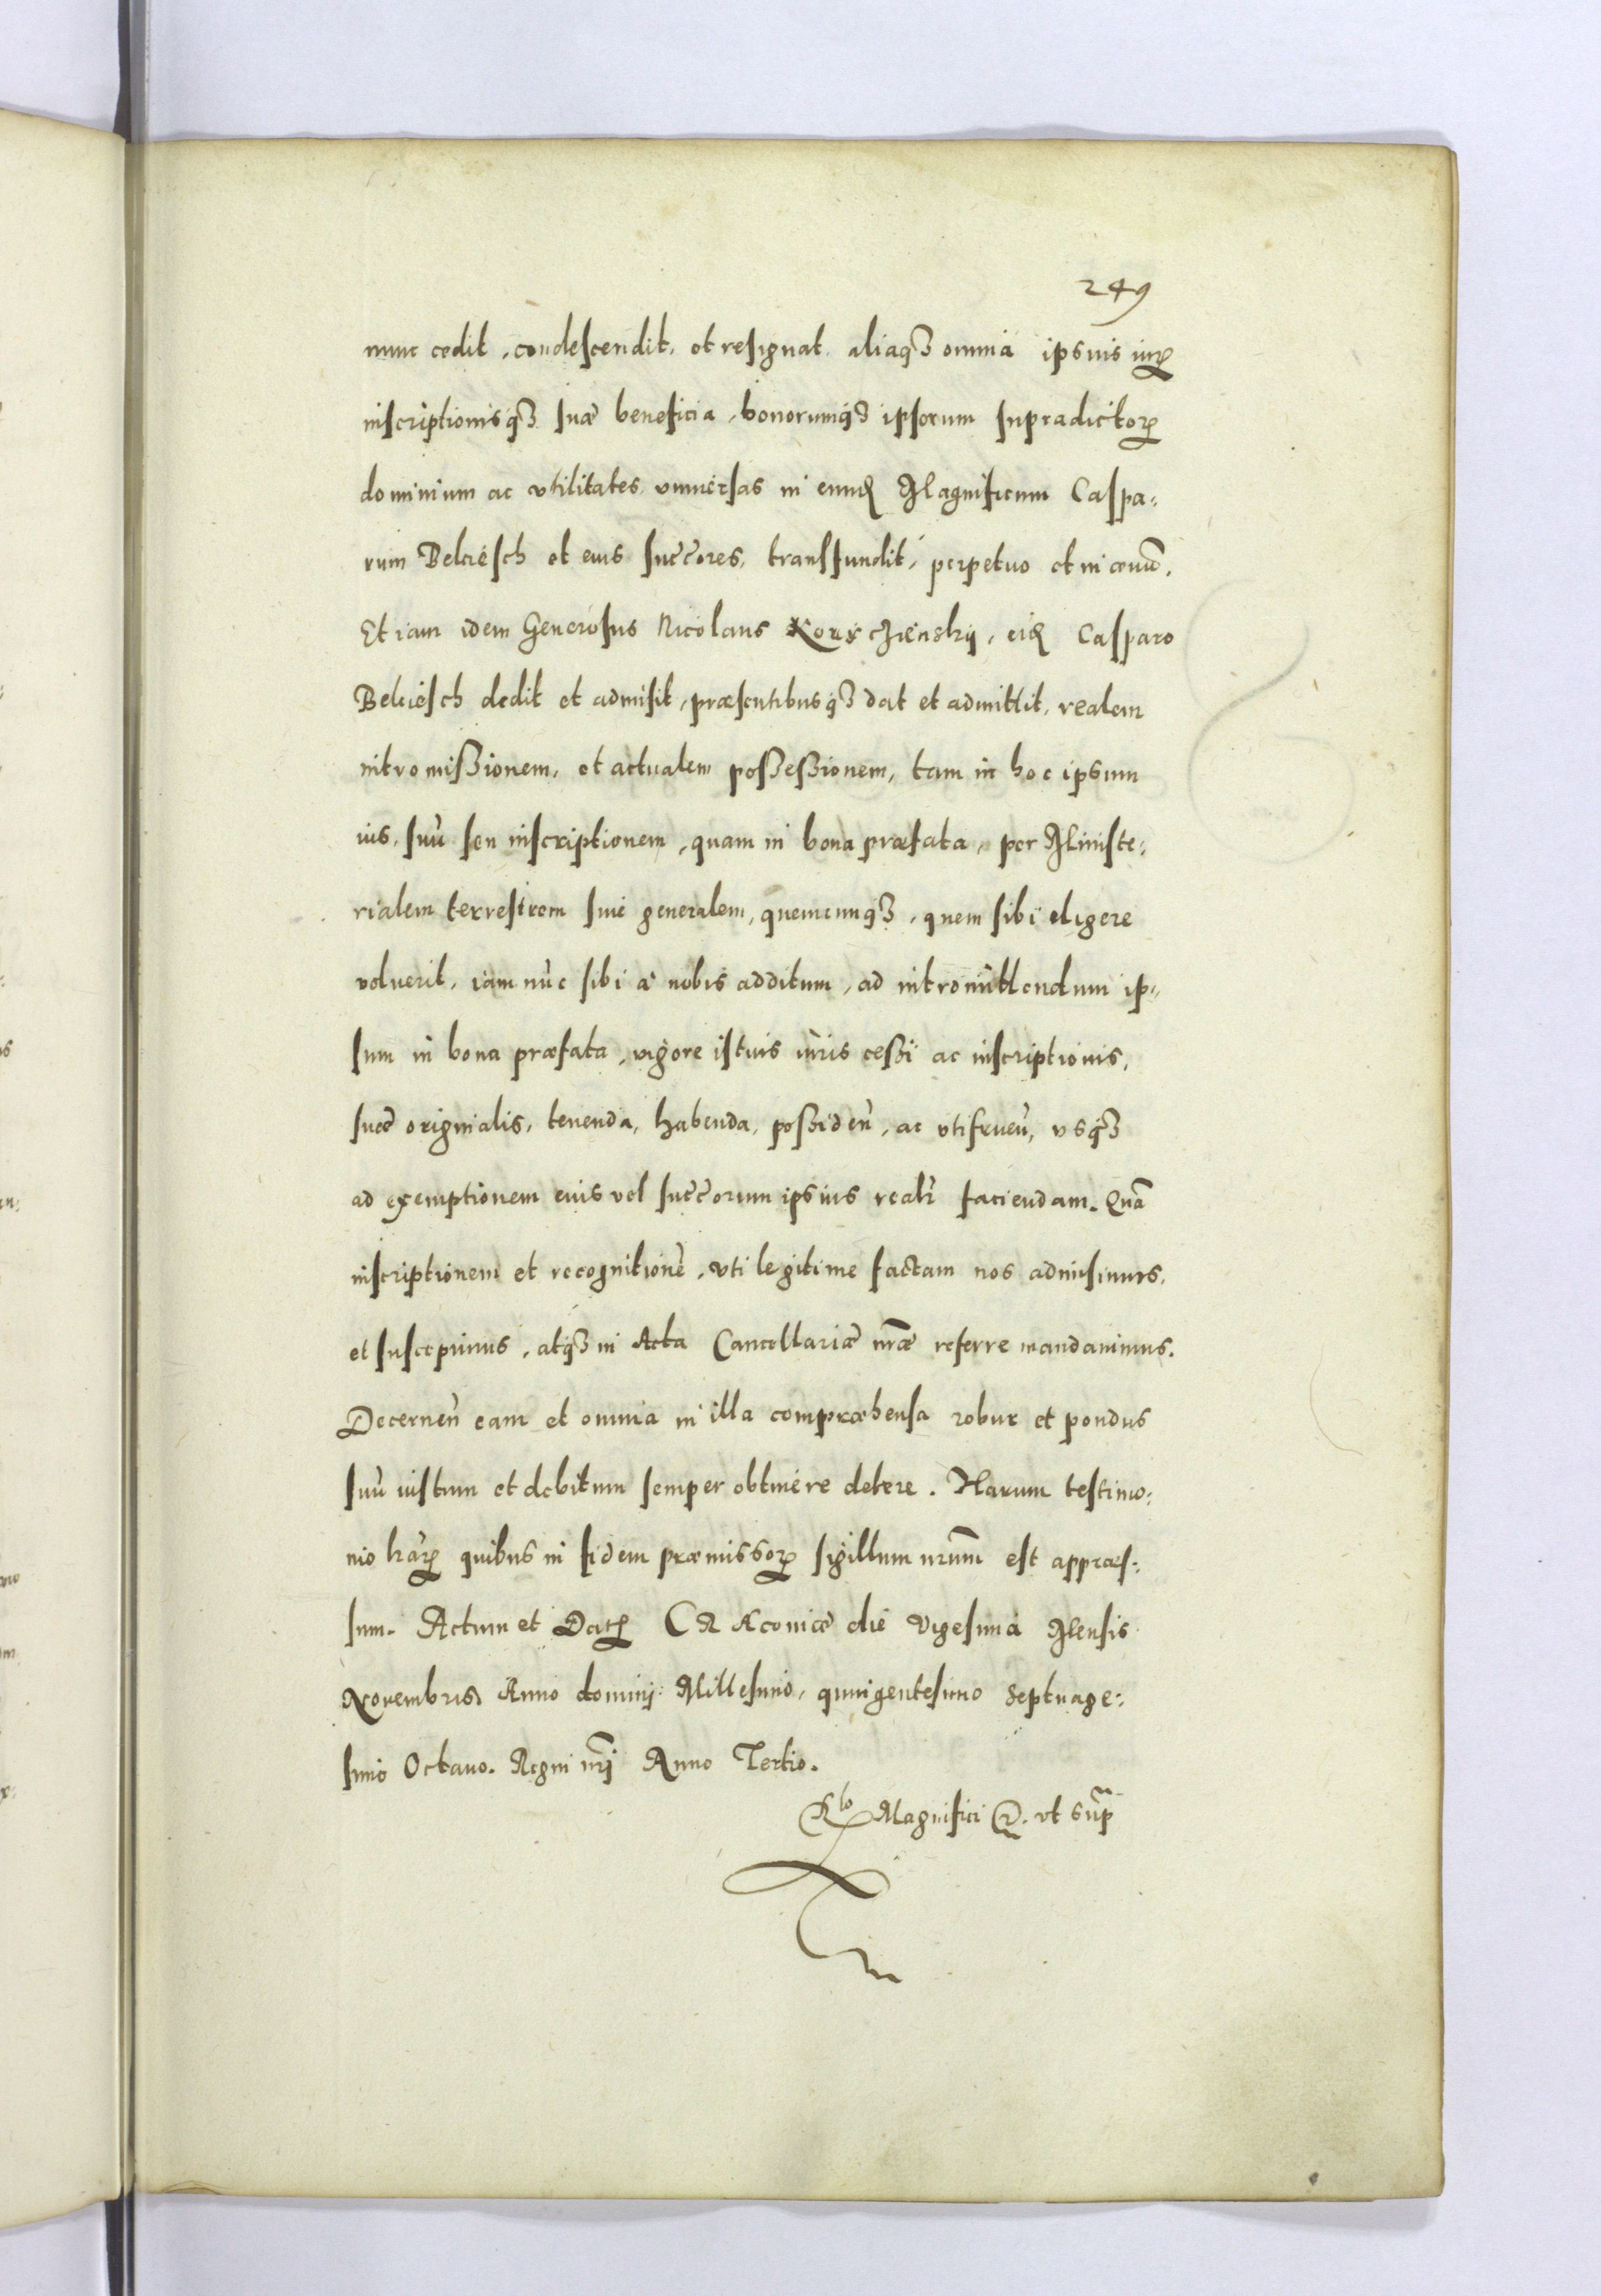 249
nunc cedit, condescendit, et resignat, aliaqꝫ omnia ipsius iurꝫ
inscriptionisqꝫ suæ beneficia, bonorumqꝫ ipsorum supradictorꝫ
dominium ac vtilitates vniuersas in eundꝫ Magnificum Caspa:
rum Bekiesch et eius succ̃ores, transfundit, perpetuo et in æuum̃.
Et iam idem Generosus Nicolaus eidꝫ Casparo
Bekiesch dedit et admisit, præsentibusqꝫ dat et admittit, realem
intromissionem, et actualem possessionem, tam in hoc ipsum
ius, suũ seu inscriptionem, quam in bona præfata, per Ministe:
rialem terrestrem siue generalem, quemcunqꝫ, quem sibi eligere
voluerit, iam nũc sibi à nobis additum, ad intromittendum ip:
sum in bona præfata, vigore istius iuris cessi ac inscriptionis,
suæ originalis, tenenda, habenda, possideñ, ac vtifrueñ, vsqꝫ
ad exemptionem eius vel succ̃orum ipsius realr̃ faciendam. Quã
inscriptionem et recognitionẽ, vti legitime factam nos admisimus,
et suscepimus, atqꝫ in Acta Cancellariæ nr̃æ referre mandauimus.
Decerneñ eam et omnia in illa compræhensa robur et pondus
suũ iustum et debitum semper obtinere debere. Harum testimo:
nio lr̃arꝫ quibus in fidem præmissorꝫ sigillum nr̃um est appræs:
sum. Actum et Datꝫ CRAcouiæ die vigesima Mensis
Nouembris Anno dominj Millesimo, quingentesimo Septuage:
simo Octauo. Regni nr̃j Anno Tertio.
Rlo Magnifici &. vt sup̃